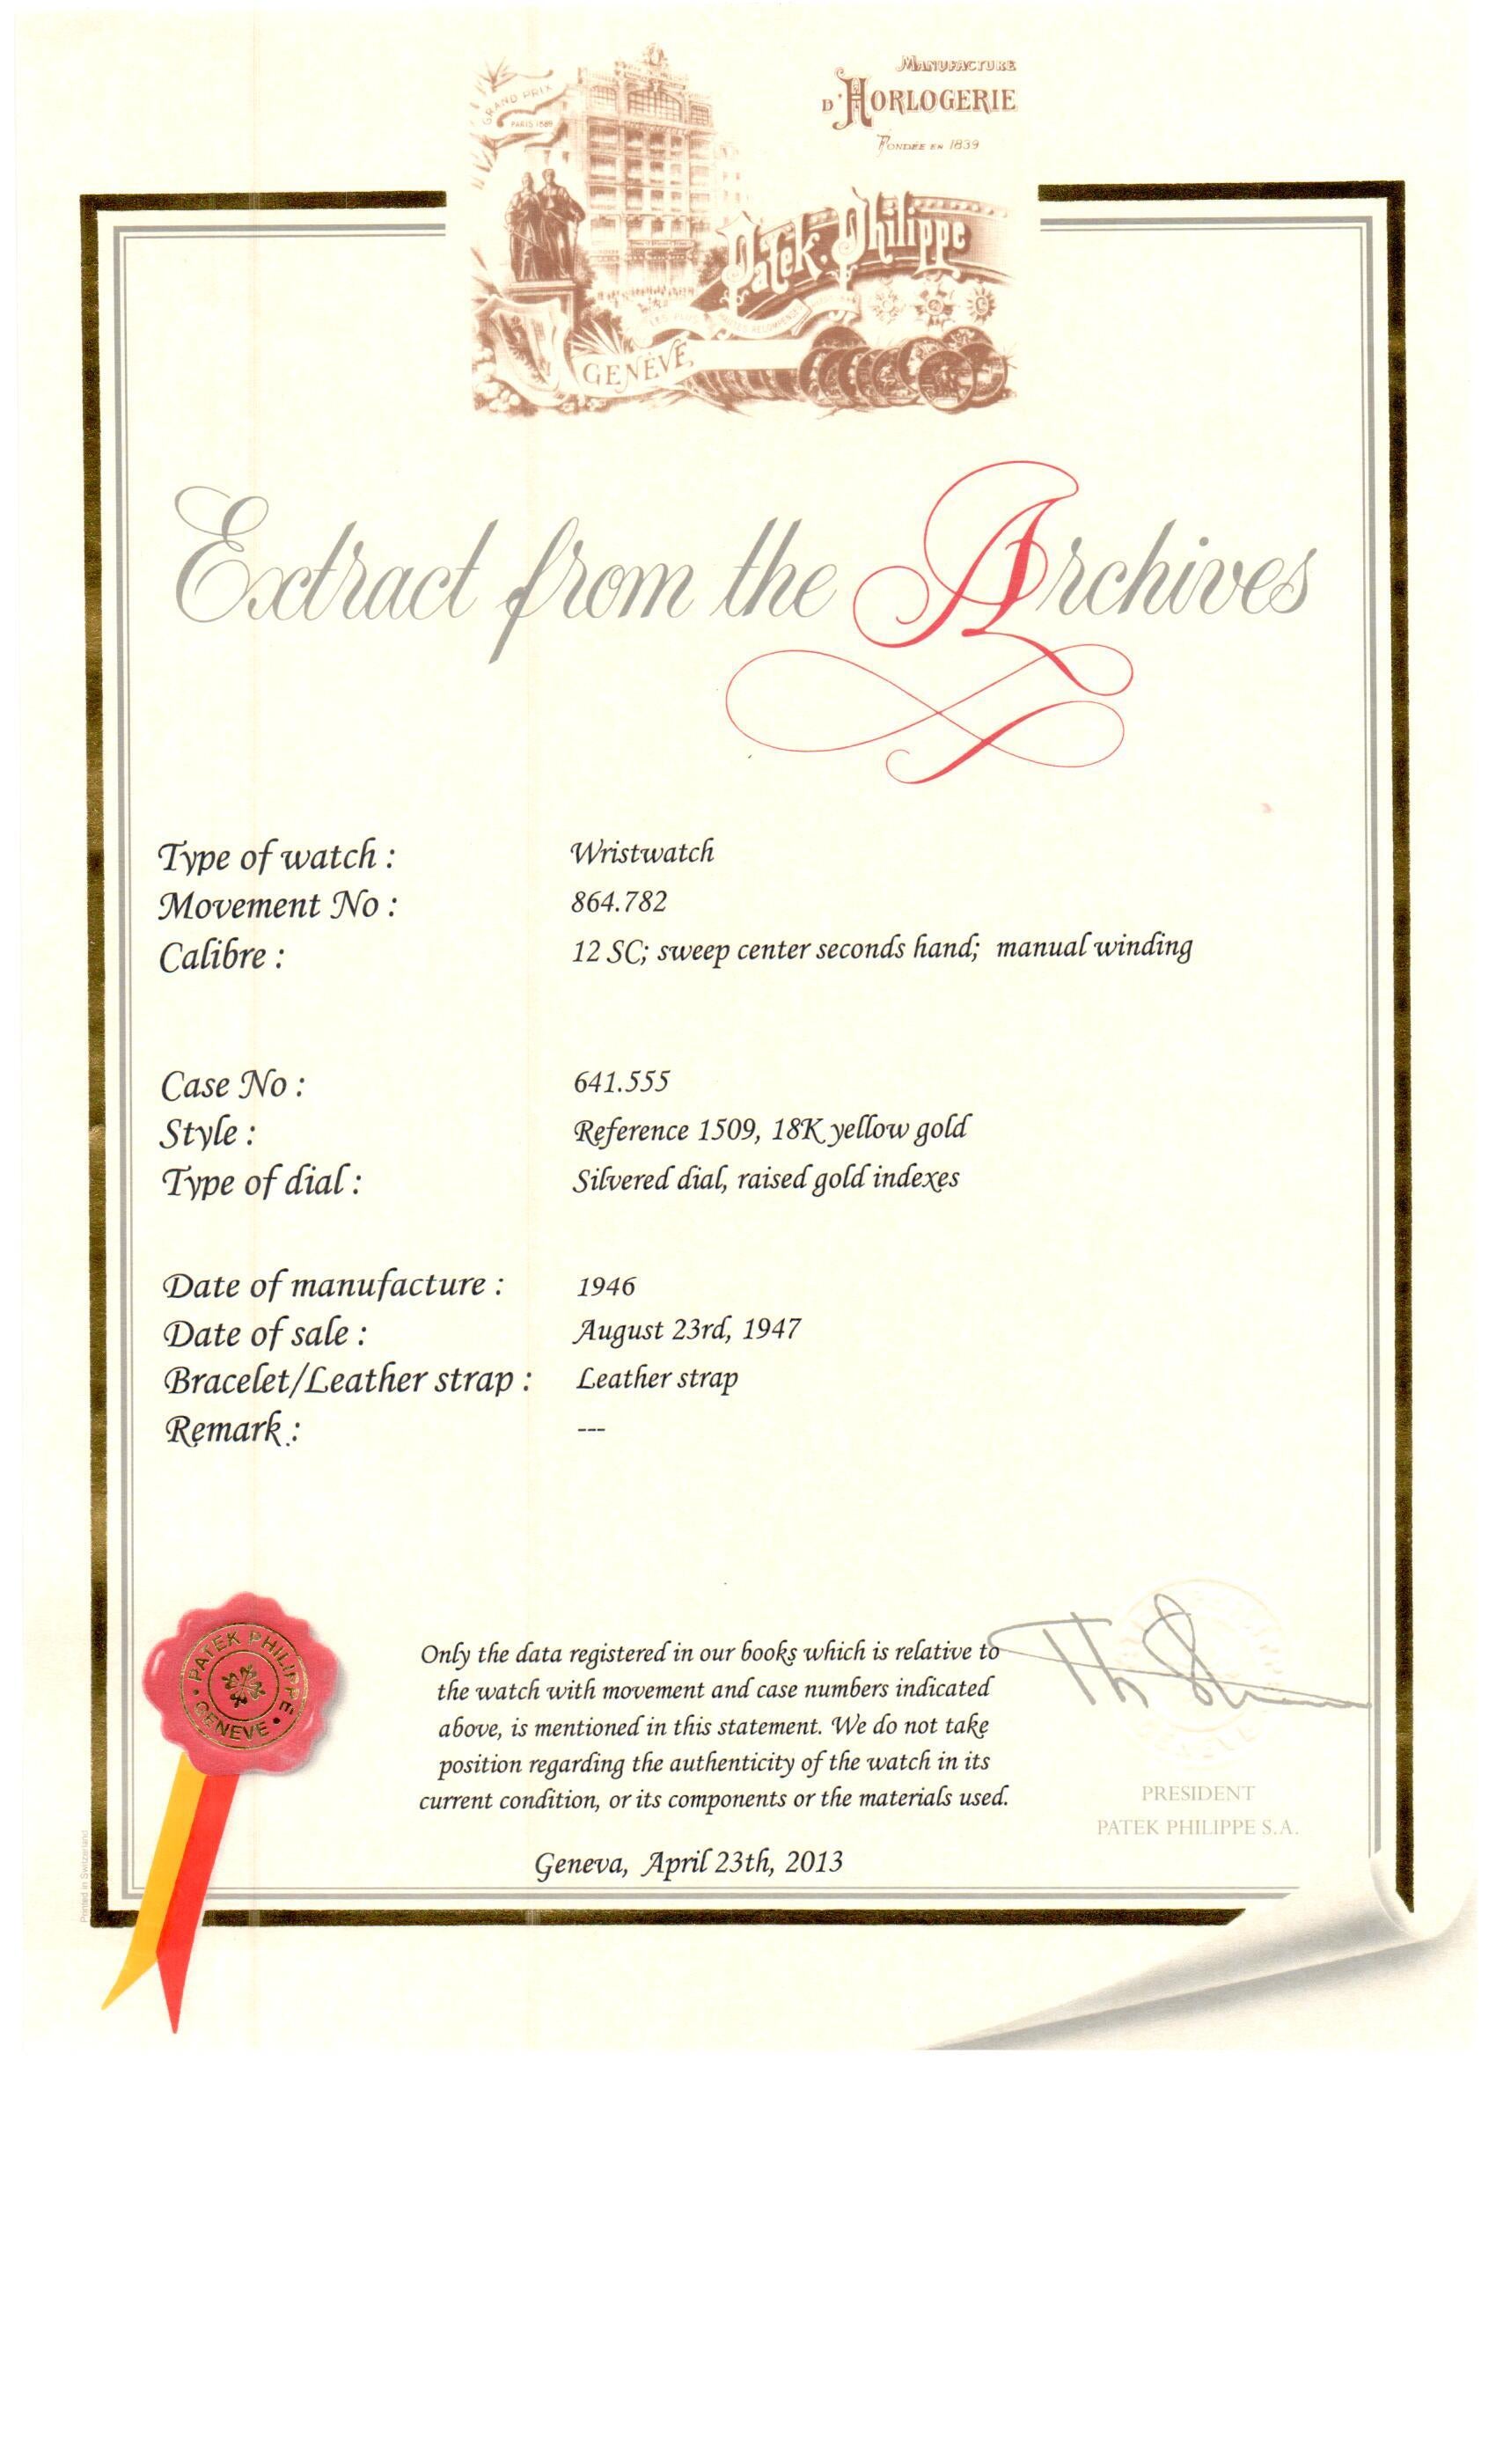 MANUFACTURE
D'HORLOGERIE
FONDÉE EN 1839
GRAND PRIX
PARIS 1889
Patek Philippe
GENÈVE
Extract from the Archives
Type of watch : Wristwatch
Movement No : 864.782
Calibre : 12 SC; sweep center seconds hand; manual winding
Case No : 641.555
Style : Reference 1509, 18K yellow gold
Type of dial : Silvered dial, raised gold indexes
Date of manufacture : 1946
Date of sale : August 23rd, 1947
Bracelet/Leather strap : Leather strap
Remark : ---
PATEK PHILIPPE
GENEVE
Only the data registered in our books which is relative to
the watch with movement and case numbers indicated
above, is mentioned in this statement. We do not take
position regarding the authenticity of the watch in its
current condition, or its components or the materials used.
Geneva, April 23th, 2013
PRESIDENT
PATEK PHILIPPE S.A.
Printed in Switzerland